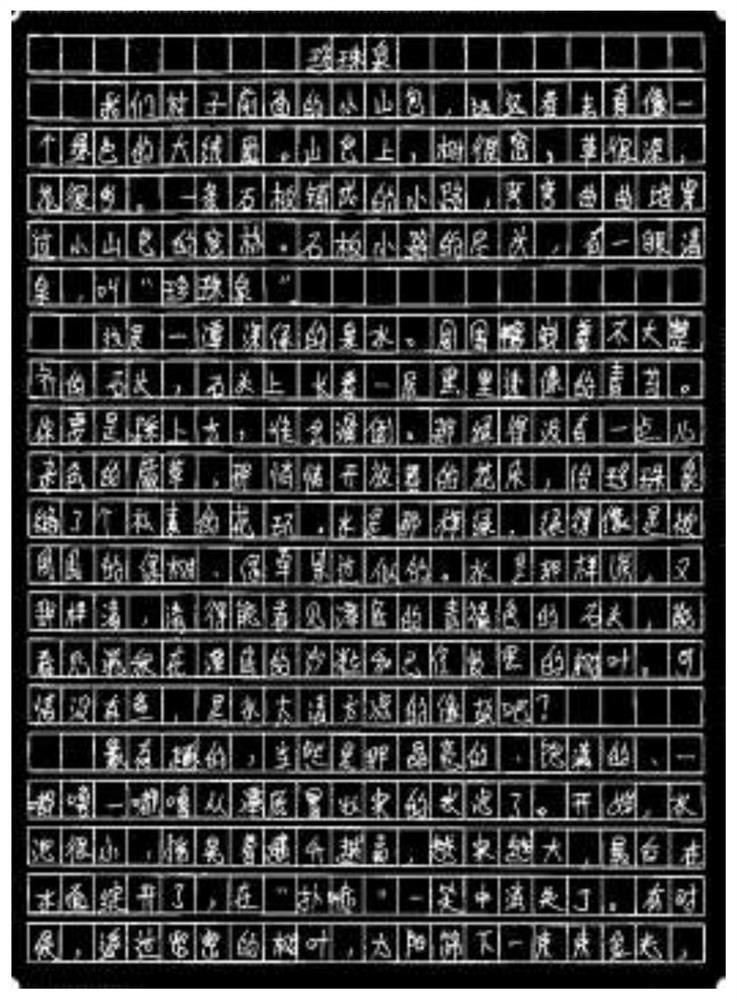 珍珠泉
我们村子前面的小山包，远远看去真像一
个绿色的大绒团。山包上，树很密，草很深，
花很多。一条石板铺成的小路，弯弯曲曲地穿
过小山包的密林。石板小路的尽头，有一眼清
泉，叫“珍珠泉”。
这是一潭深绿的泉水。周围镶嵌着不大整
齐的石头，石头上长着一层黑里透绿的青苔。
你要是踩上去，准会滑倒。那绿得没有一点儿
杂色的蕨草，那悄悄开放着的花朵，给珍珠泉
编了个朴素的花环。水是那样绿，绿得像是被
周围的绿树、绿草染过似的。水是那样深，又
那样清，清得能看见潭底的青褐色的石头，能
看见沉积在潭底的沙粒和已经发黑的树叶。可
惜没有鱼，是水太清太凉的缘故吧？
最有趣的，当然是那晶亮的、饱满的、一
嘟噜一嘟噜从潭底冒出来的水泡了。开始，水
泡很小，摇晃着越升越高，越来越大，最后在
水面绽开了，在“扑哧”一笑中消失了。有时
候，透过密密的树叶，太阳筛下一束束金光，